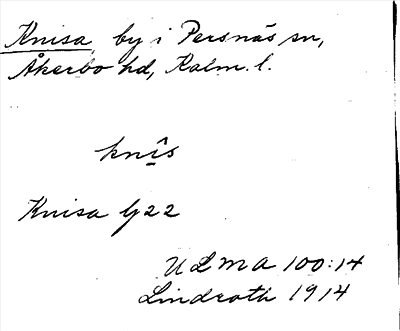 Knisa, by i Persnäs sn,
Åkerbo hd, Kalm. l.
knîs
Knisa by 22
ULMA 100:14
Lindroth 1914